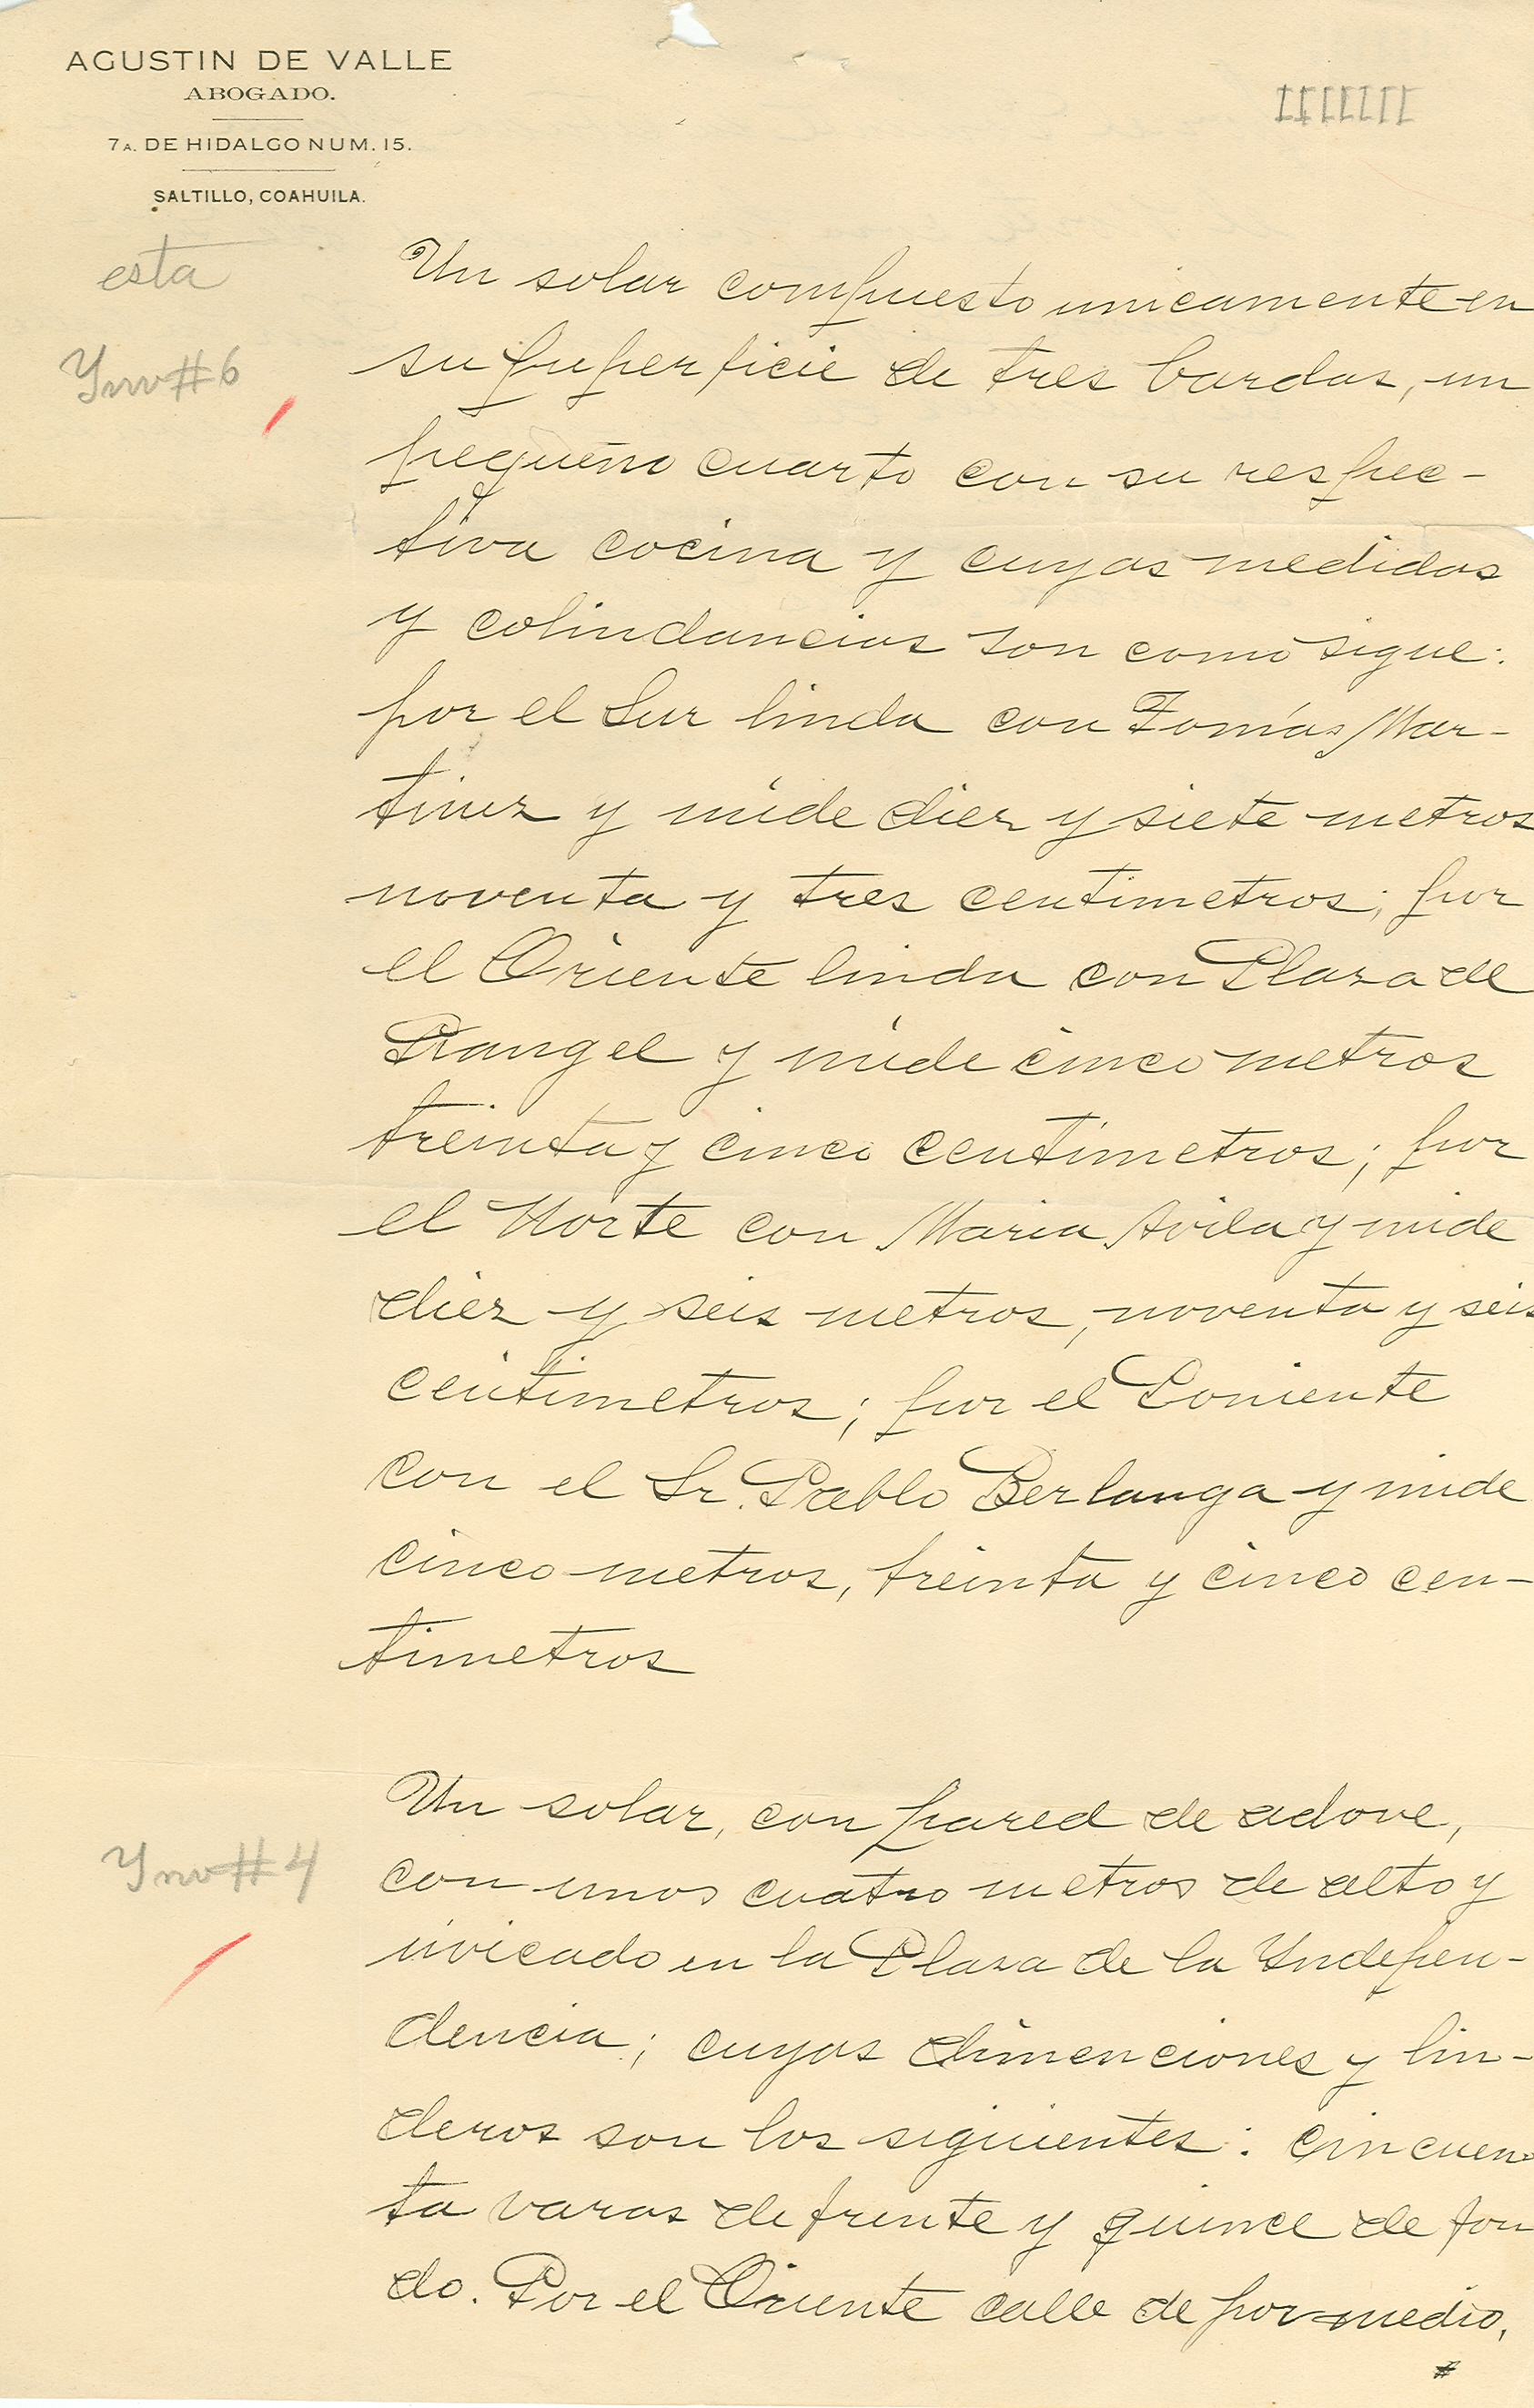 AGUSTIN DE VALLE
ABOGADO.
7A. DE HIDALGO NUM. 15.
SALTILLO, COAHUILA.
IIIIIII
esta
Ynv#6
Un solar compuesto unicamente en
su superficie de tres bardas, un
pequeño cuarto con su respec-
tiva cocina y cuyas medidas
y colindancias son como sigue:
por el Sur linda con Tomás Mar-
tinez y mide diez y siete metros
noventa y tres centimetros; por
el Oriente linda con Plaza de
Rangel y mide cinco metros
treinta y cinco centimetros; por
el Norte con Maria Avila y mide
diez y seis metros, noventa y seis
centimetros; por el Poniente
con el Sr. Pablo Berlanga y mide
cinco metros, treinta y cinco cen-
timetros
Ynv#4
Un solar, con pared de adove,
con unos cuatro metros de alto y
uvicado en la Plaza de la Yndepen-
dencia; cuyas dimenciones y lin-
deros son los siguientes: cincuen-
ta varas de frente y quince de fon
do. Por el Oriente calle de por medio,
#